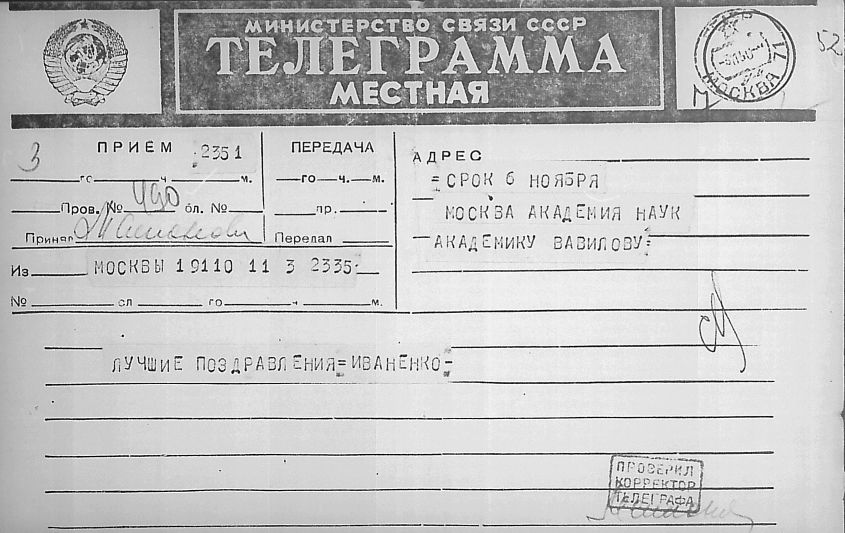 МИНИСТЕРСТВО СВЯЗИ СССР
ТЕЛЕГРАММА
МЕСТНАЯ
МОСКВА
52
3
ПРИЁМ 2351
го ч. м.
Пров. № бл. №
Принял
ПЕРЕДАЧА
го ч. м.
пр.
Передал
АДРЕС
=СРОК 6 НОЯБРЯ
МОСКВА АКАДЕМИЯ НАУК
АКАДЕМИКУ ВАВИЛОВУ=
Из МОСКВЫ 19110 11 3 2335-
№ сл го ч м.
ЛУЧШИЕ ПОЗДРАВЛЕНИЯ=ИВАНЕНКО-
ПРОВЕРИЛ
КОРРЕКТОР
ТЕЛЕГРАФА